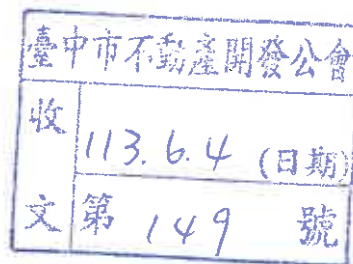 臺中市不動產開發公會
收
113.6.4 (日期)
文 第 149 號